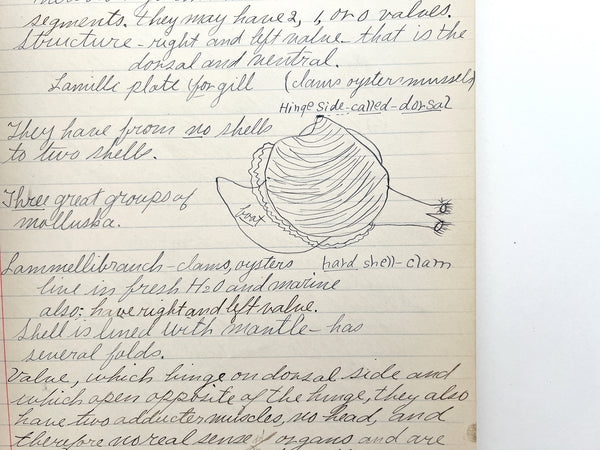 segments. They may have 2, 1, or 0 valves.
Structure - right and left valve that is the
dorsal and ventral.
Lamille plate for gill (clams oyster mussels)
Hinge side - called - dorsal
They have from no shells
to two shells.
Three great groups of
molluska.
foot
Lammellibranch - clams, oysters
hard shell - clam
live in fresh H2O and marine
also; have right and left valve.
Shell is lined with mantle - has
several folds.
Valve, which hinge on dorsal side and
which open opposite of the hinge, they also
have two adducter muscles, no head, and
therefore no real sense organs and are